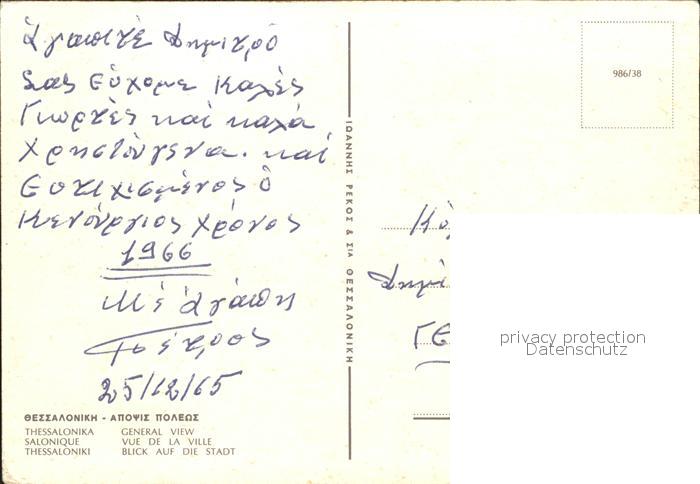 Ἀγαπιτὲ Δημιτρό
Σας Εὐχομε Καλὲς
Γιωρτὲς καὶ καλά
Χρηστοὺγενα. καὶ
Ευτιχισμένος ὁ
Κενόυργιος χρόνος
1966
Μὲ ἀγάπη
Πέτρος
25/12/65
ΘΕΣΣΑΛΟΝΙΚΗ - ΑΠΟΨΙΣ ΠΟΛΕΩΣ
THESSALONIKA GENERAL VIEW
SALONIQUE VUE DE LA VILLE
THESSALONIKI BLICK AUF DIE STADT
ΙΩΑΝΝΗΣ ΡΕΚΟΣ & ΣΙΑ ΘΕΣΣΑΛΟΝΙΚΗ
986/38
Δημι
ΓΕ
privacy protection
Datenschutz